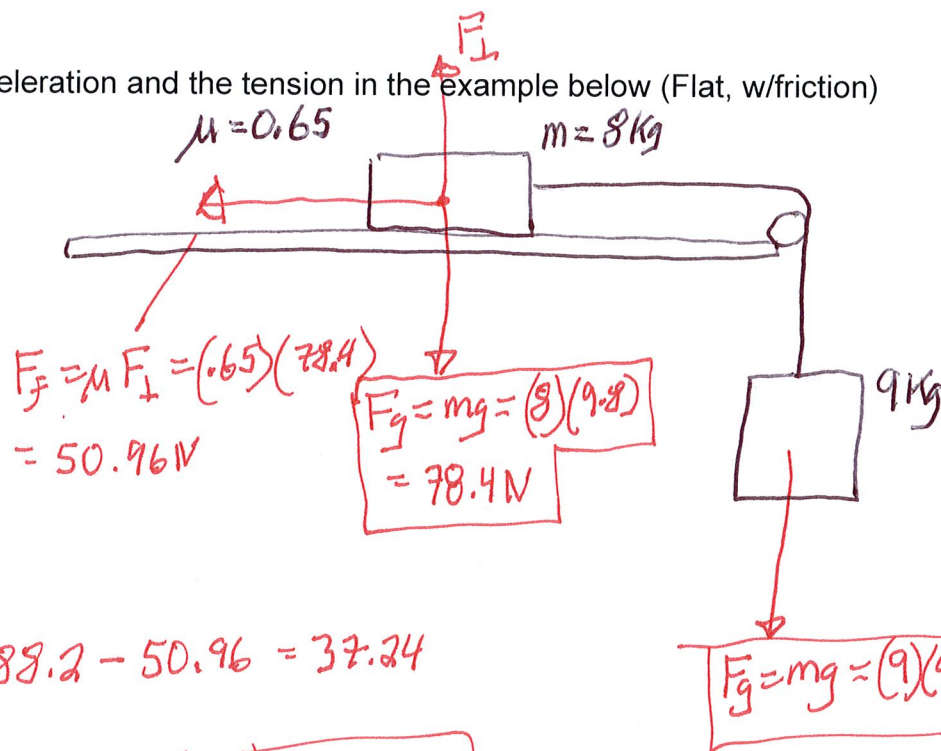 F⊥
eleration and the tension in the example below (Flat, w/friction)
μ=0.65
m=8Kg
9Kg
F_f=μF⊥=(.65)(78.4)
= 50.96N
Fg=mg=(8)(9.8)
= 78.4N
88.2-50.96=37.24
Fg=mg=(9)(